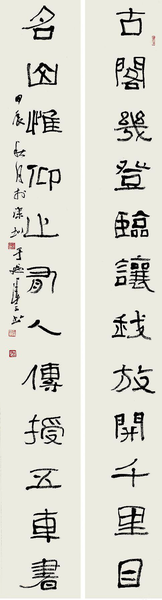 古閣幾登臨讓我放開千里目
名山惟仰止有人傳授五車書
甲辰秋月於深圳